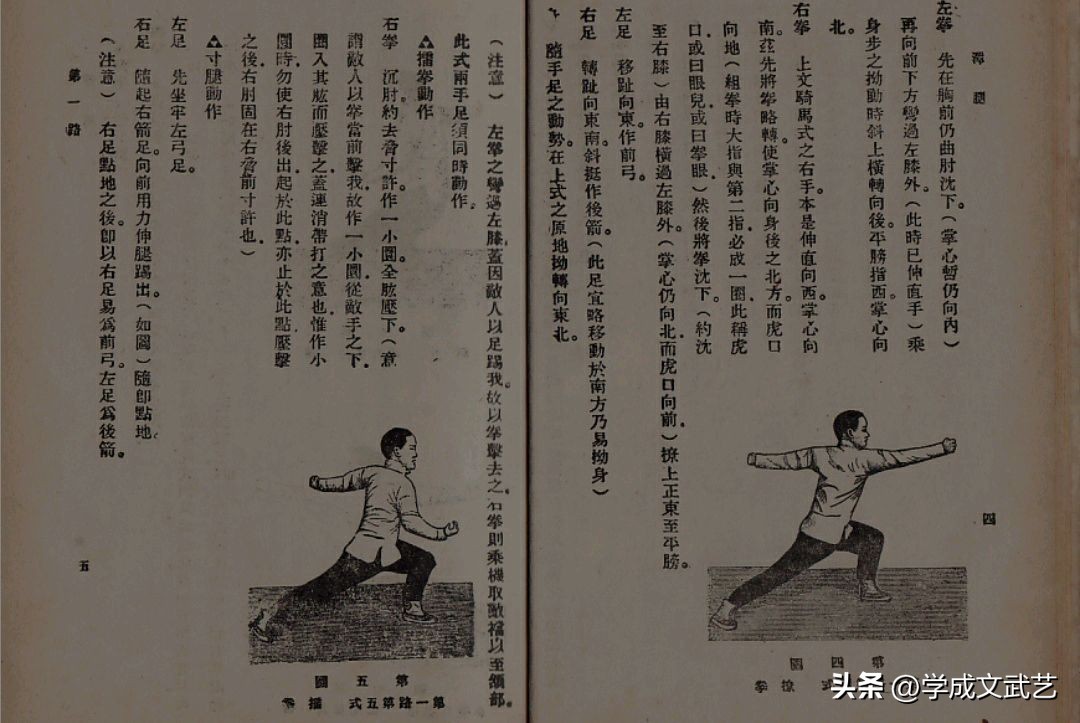 潭腿
左拳　先在胸前仍曲肘沈下。（掌心暫仍向內）
再向前下方彎過左膝外。（此時已伸直手）乘
身步之拗動時斜上橫轉向後。平膀指西。掌心向
北。
右拳　上文騎馬式之右手。本是伸直向西。掌心向
南。茲先將拳略轉。使掌心向身後之北方。而虎口
向地（組拳時大指與第二指必成一圈。此稱虎
口或曰眼兒或曰拳眼）然後將拳沈下。（約沈
至右膝）由右膝橫過左膝外。（掌心仍向北。而虎口向前。）撩上正東至平膀。
左足　移趾向東。作前弓。
右足　轉趾向東南。斜挺作後箭。（此足宜略移動於南方乃易拗身）
隨手足之動勢。在上式之原地拗轉向東北。
四
第四圖
式　撩拳
（注意）　左拳之彎過左膝。蓋因敵人以足踢我。故以拳擊去之。右拳則乘機取敵襠以至頷部。
此式兩手足須同時動作。
擂拳動作
右拳　沉肘。約去脅寸許。作一小圈。全肱壓下。（意
謂敵人以拳當前擊我。故作一小圈。從敵手之下。
圈入其肱而壓擊之。蓋連消帶打之意也。惟作小
圈時。勿使右肘後出。起於此點。亦止於此點。壓擊
之後。右肘固在右脅前寸許也。）
寸腿動作
左足　先坐牢左弓足。
右足　隨起右箭足。向前用力伸腿踢出。（如圖）隨卽點地。
（注意）　右足點地之後。卽以右足易爲前弓。左足爲後箭。
第一路
五
第五圖
第一路第五式　擂拳
头条 @学成文武艺